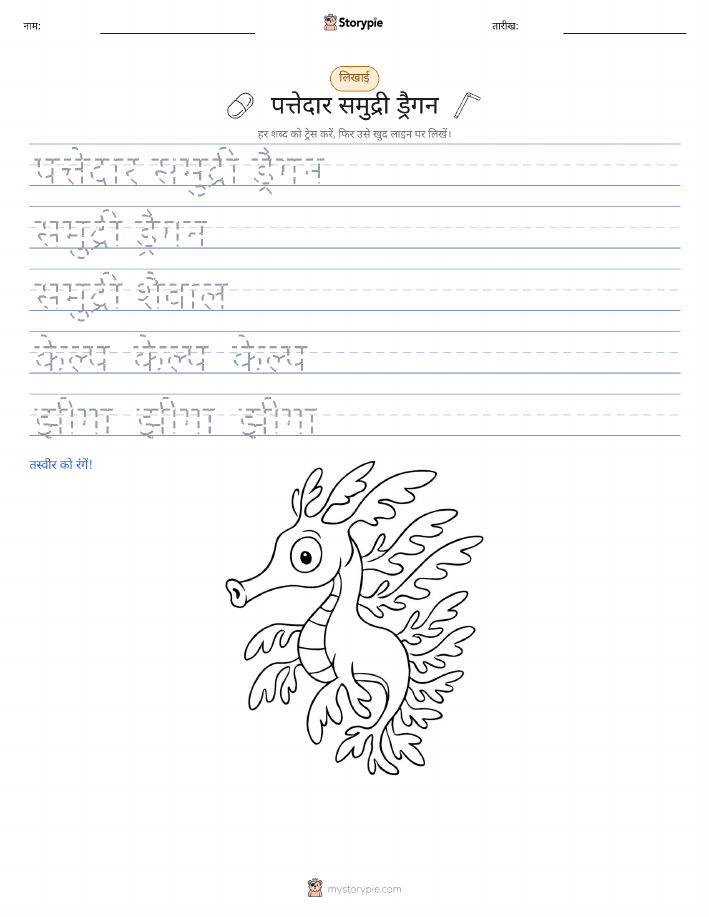 नाम:
Storypie
तारीख:
लिखाई
पत्तेदार समुद्री ड्रैगन
हर शब्द को ट्रेस करें, फिर उसे खुद लाइन पर लिखें।
पत्तेदार समुद्री ड्रैगन
समुद्री ड्रैगन
समुद्री शैवाल
केल्प केल्प केल्प
झींगा झींगा झींगा
तस्वीर को रंगें!
mystorypie.com